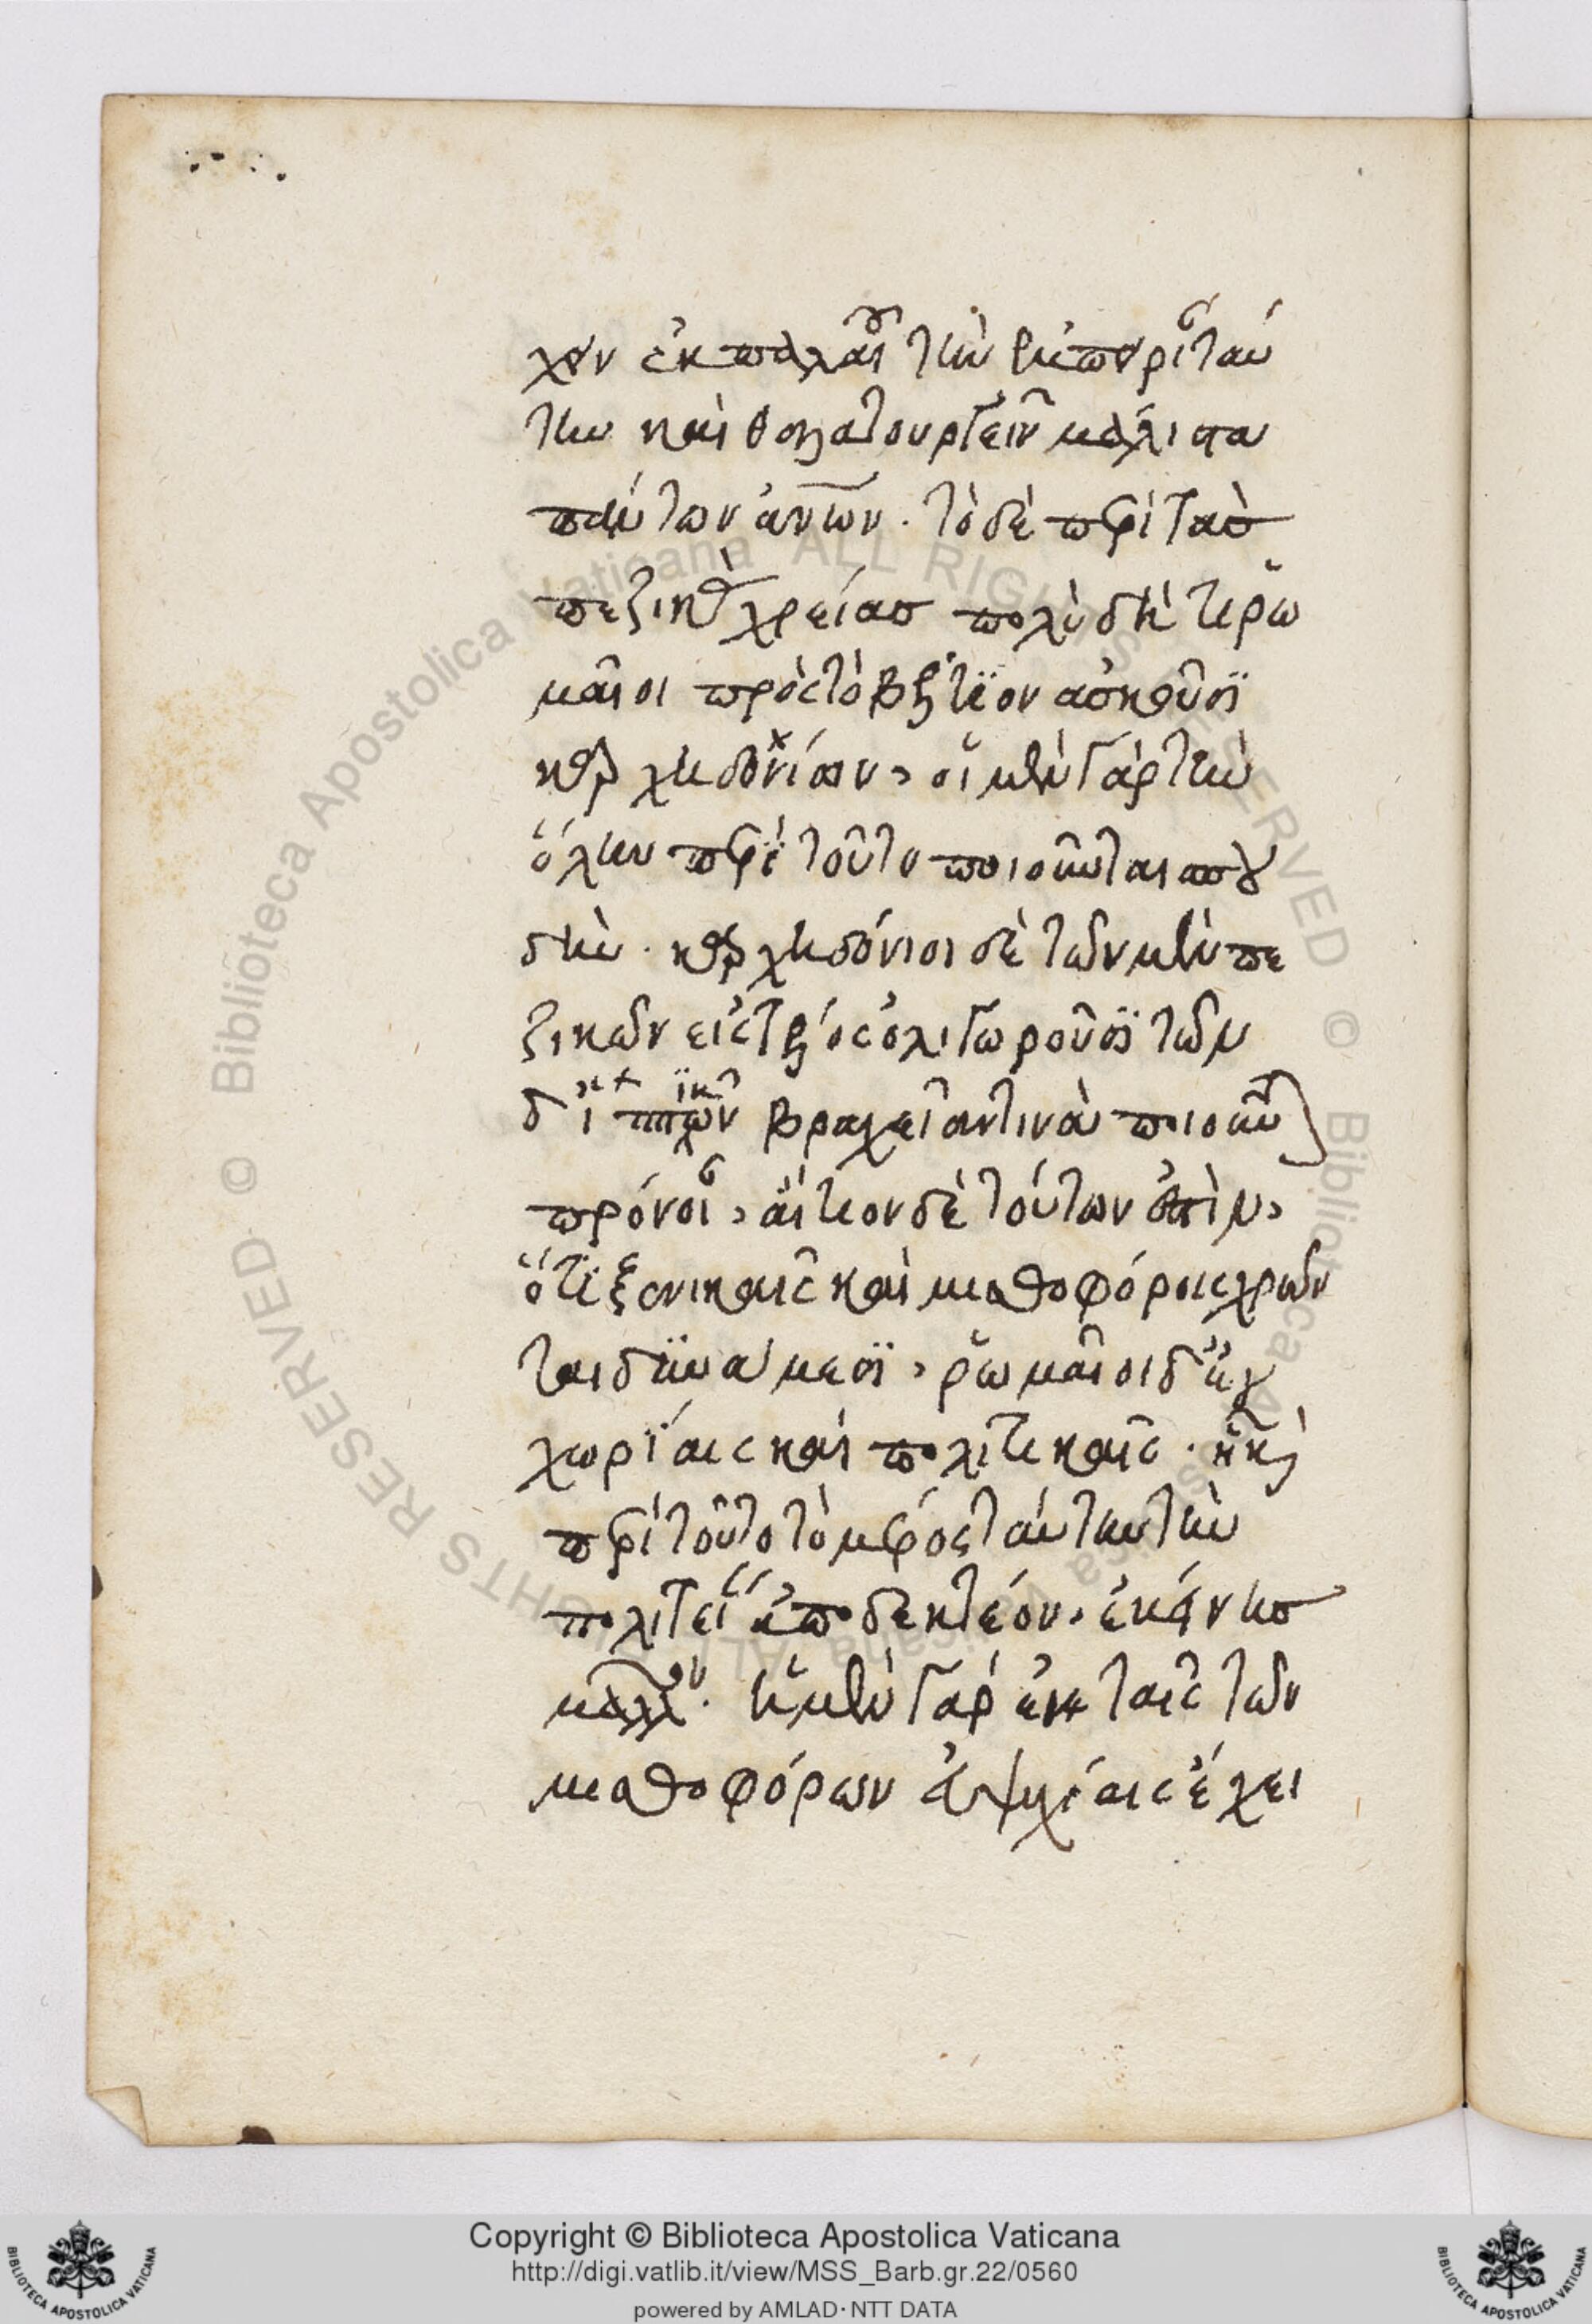 χειν ἐκ παλαιοῦ τὴν ἐμπειρίαν ταύ
την καὶ θαλαττουργεῖν μάλιστα
πάντων ἀνων. τὸ δὲ περὶ τὰς
πεζικὰς χρείας πολὺ δή τι ῥω
μαῖοι πρὸς τὸ βέλτιον ἀσκοῦσϊ
καρχηδονίων, οἱ μὲν γὰρ τὴν
ὅλην περὶ τοῦτο ποιοῦνται σπου
δήν. καρχηδόνιοι δὲ τῶν μὲν πε
ζικῶν εἰς τέλος ὀλιγωροῦσϊ τῶν
δ' ἱππικῶν βραχεῖάν τινα ποιοῦνται
πρόνοιαν, αἴτιον δὲ τούτων ἐστὶν,
ὅτι ξενικαῖς καὶ μισθοφόροις χρῶν
ται δυνάμεσϊ, ῥωμαῖοι δ' ἐγ
χωρίαις καὶ πολιτικαῖς. ᾗ καὶ
περὶ τοῦτο τὸ μέρος ταύτην τὴν
πολιτείαν ἀποδεκτέον, ἐκείνης
μᾶλλον. ἡ μὲν γὰρ ἐν ταῖς τῶν
μισθοφόρων εὐψυχίαις ἔχει
Copyright © Biblioteca Apostolica Vaticana
http://digi.vatlib.it/view/MSS_Barb.gr.22/0560
powered by AMLAD·NTT DATA